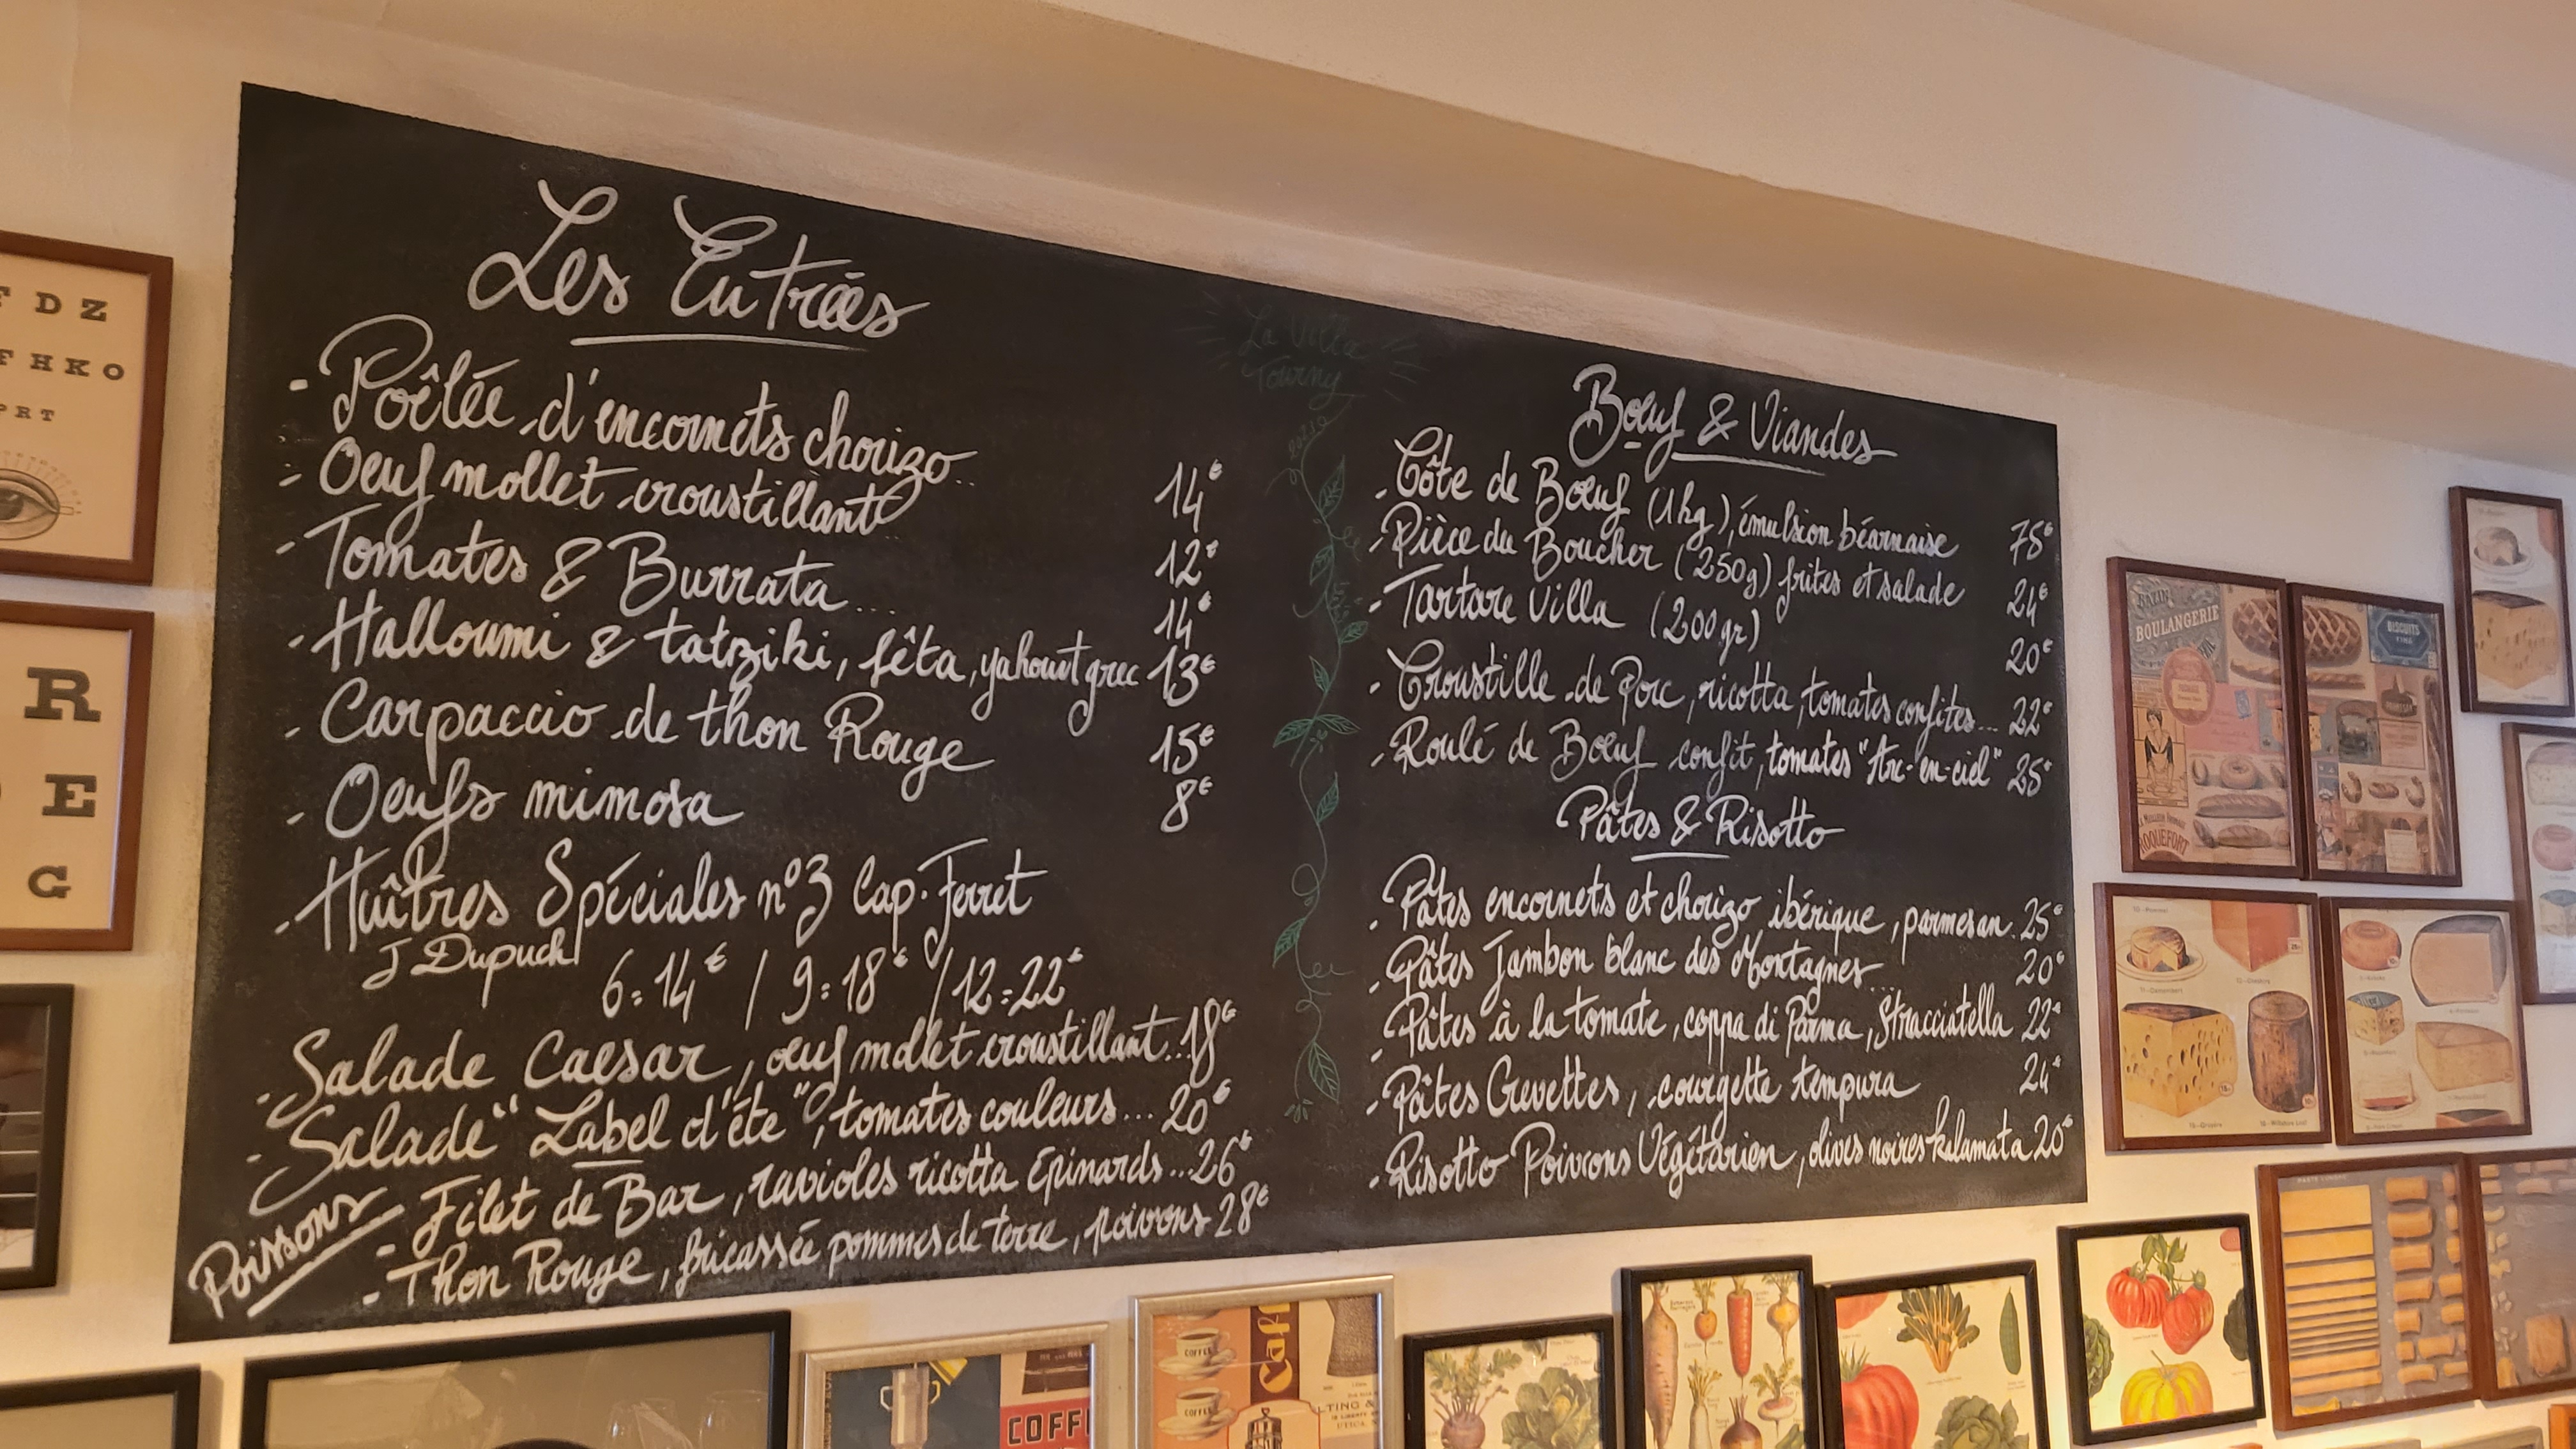 Les Entrées
- Poêlée d'encornets chorizo.. 14€
- Oeuf mollet croustillant 12€
- Tomates & Burrata... 14€
- Halloumi & tatziki, fêta, yahourt grec 13€
- Carpaccio de thon Rouge 15€
- Oeufs mimosa 8€
- Huîtres Spéciales n°3 Cap-Ferret
J Dupuch
6=14€ / 9=18€ / 12=22€
- Salade Caesar, oeuf mollet croustillant..18€
- Salade "Label d'été", tomates couleurs... 20€
Poissons
- Filet de Bar, ravioles ricotta Epinards...26€
- Thon Rouge, fricassée pommes de terre, poivrons 28€
La Villa
Tourny
Bœuf & Viandes
- Côte de Bœuf (1kg), émulsion béarnaise 75€
- Pièce du Boucher (250g) frites et salade 24€
- Tartare Villa (200gr) 20€
- Croustille de Porc, ricotta, tomates confites... 22€
- Roulé de Bœuf confit, tomates "Arc-en-ciel" 25€
Pâtes & Risotto
- Pâtes encornets et chorizo ibérique, parmesan. 25€
- Pâtes Jambon blanc des Montagnes... 20€
- Pâtes à la tomate, coppa di Parma, Stracciatella 22€
- Pâtes Crevettes, courgette tempura 24€
- Risotto Poivrons Végétarien, olives noires kalamata 20€
F D Z
F H K O
P R T
R
E
G
BOULANGERIE
ROQUEFORT
BISCUITS
COFFEE
COFFEE
COFF